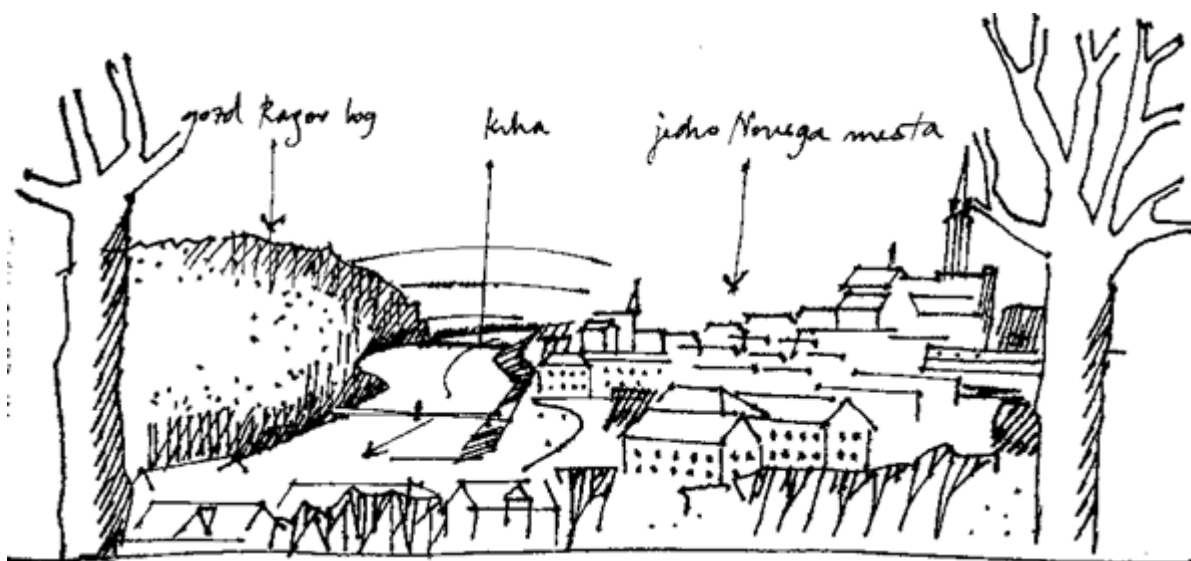 gozd Ragov log
krka
jedro Novega mesta